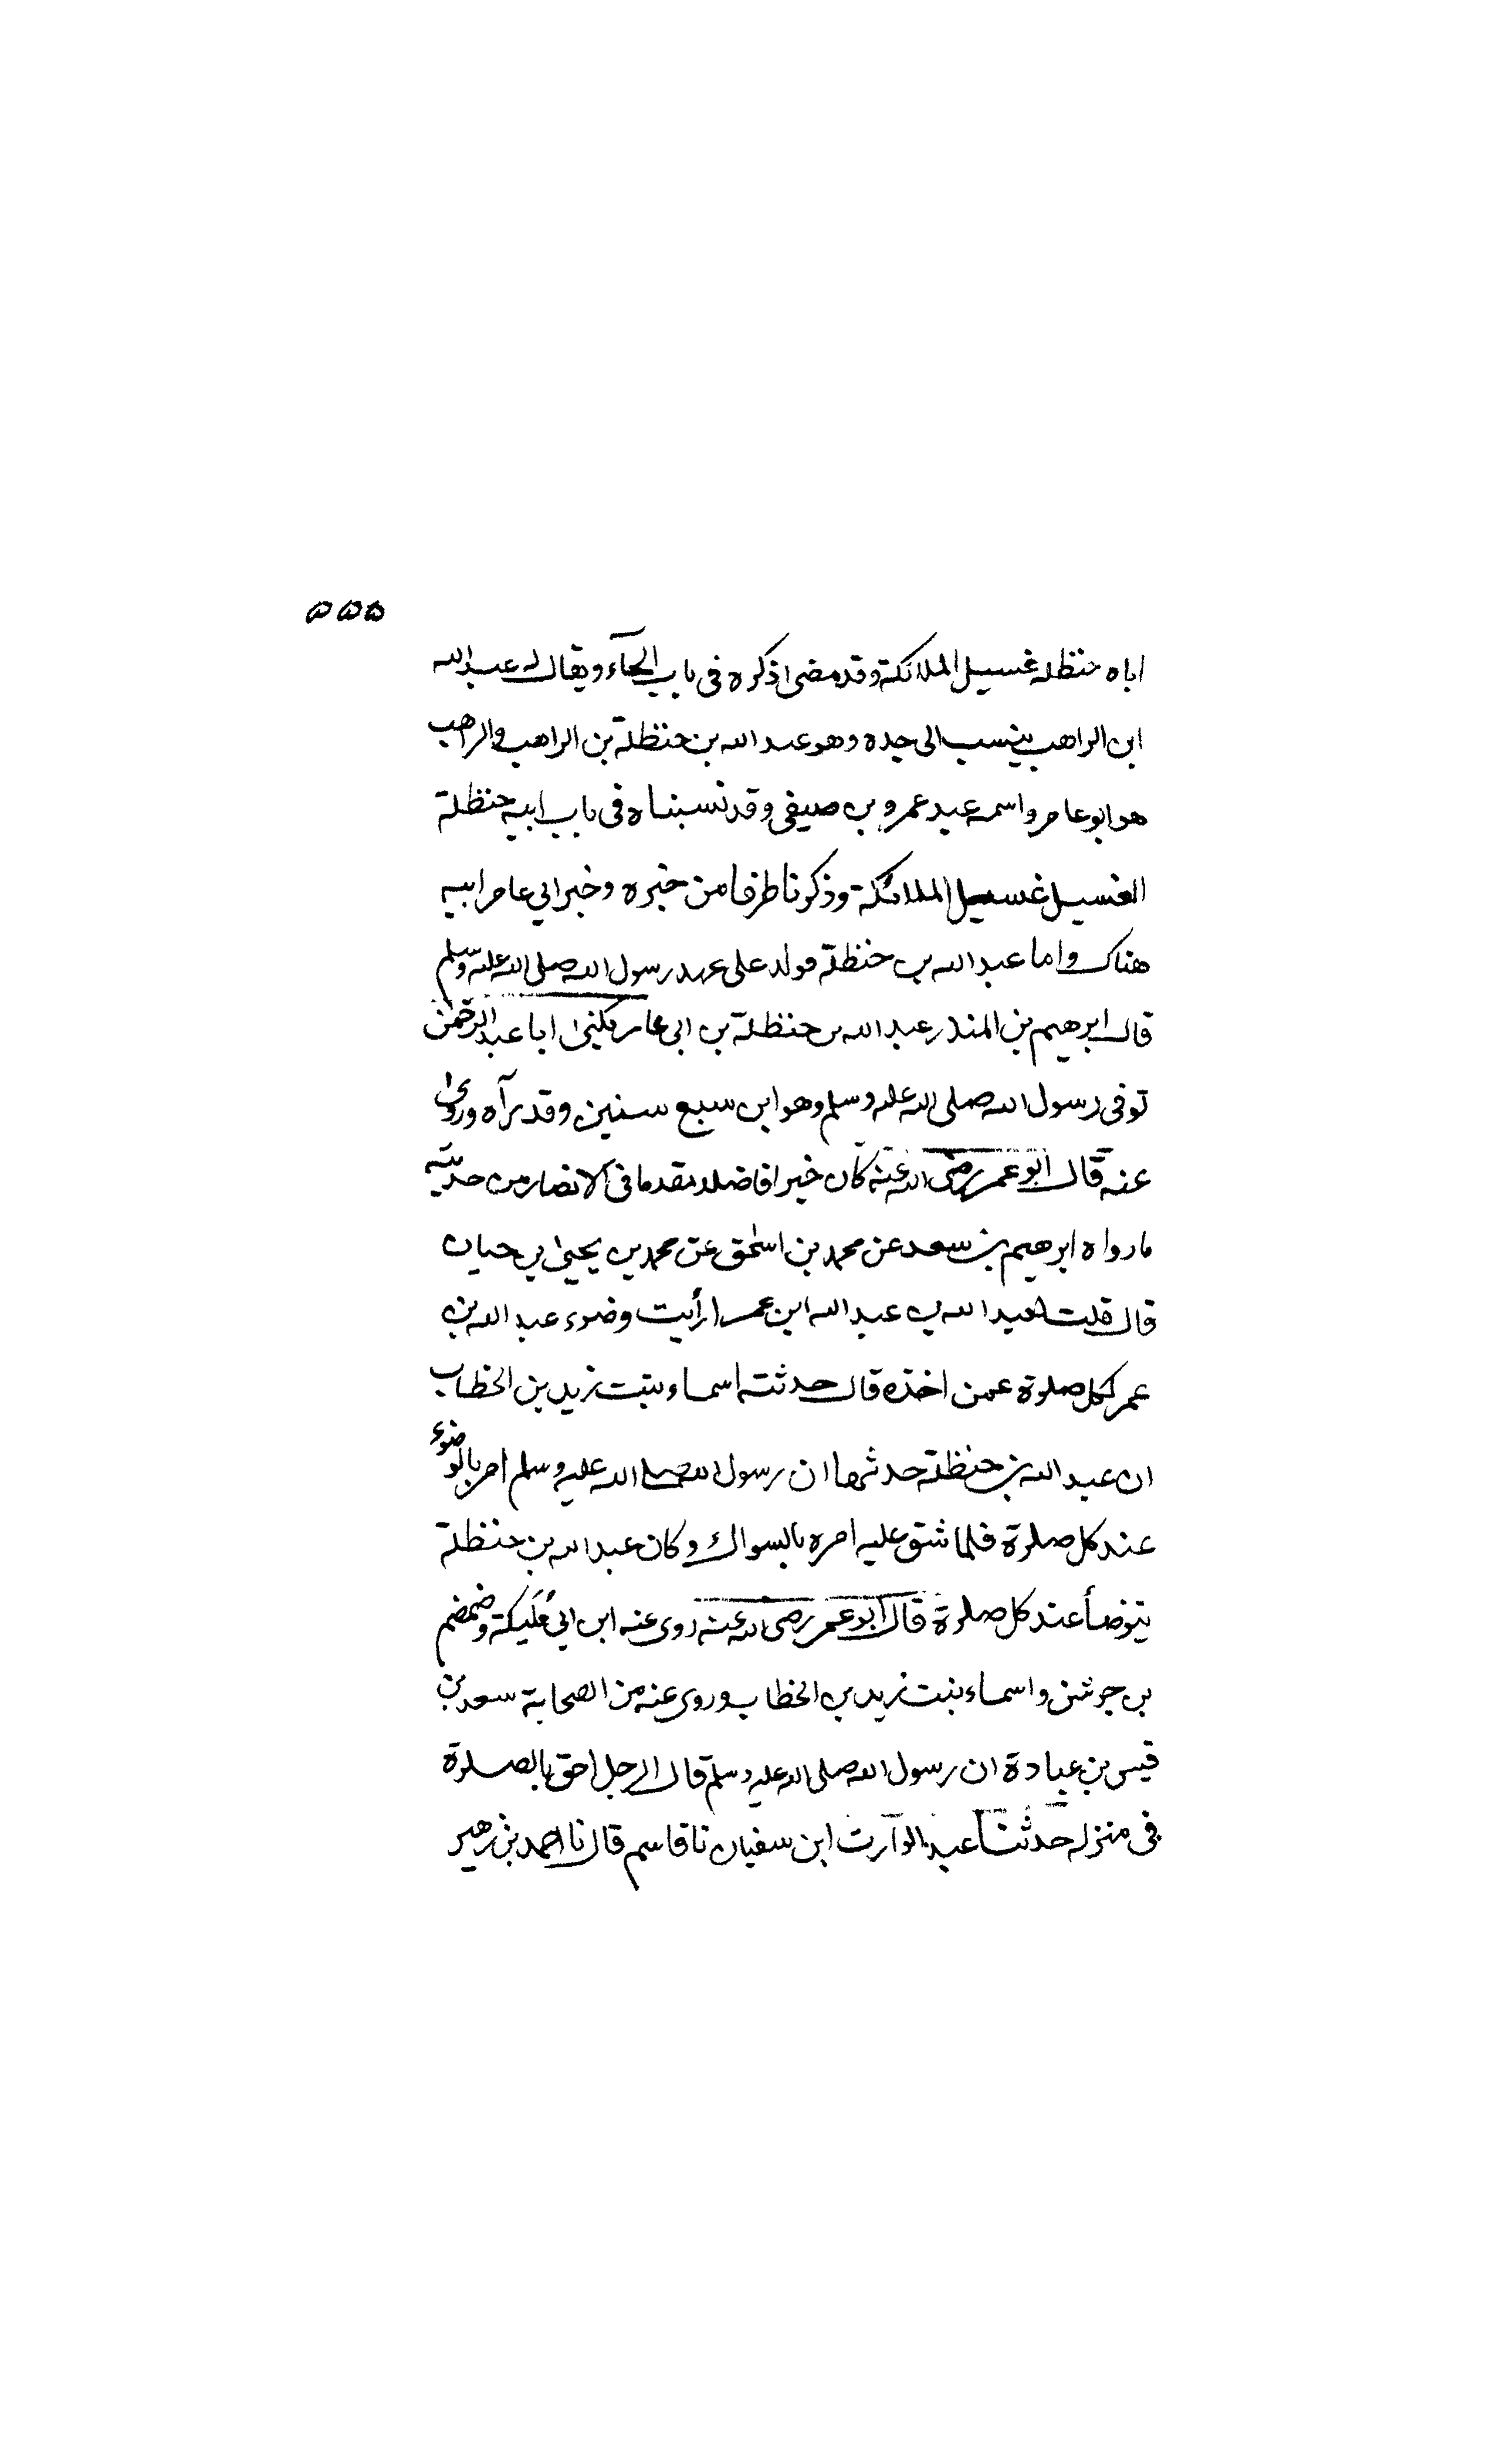 ۵۵۵
اباه حنظله غسيل الملائكة وقد مضى ذكره فى باب الحآء ويقال له عبد الله
ابن الراهب ينسب الى جده وهو عبد الله بن حنظلة بن الراهب والراهب
هو ابو عامر واسمه عبد عمرو بن صيفى وقد نسبناه فى باب ابيه حنظلة
الغسيل غسيل الملائكة وذكرنا طرفا من خبره وخبر ابي عامر ابيه
هناك واما عبد الله بن حنظلة فولد على عهد رسول الله صلى الله عليه وسلم
قال ابرهيم بن المنذر عبد الله بن حنظلة بن ابى عامر يكنىٰ ابا عبد الرحمٰن
توفى رسول الله صلى الله عليه وسلم وهو ابن سبع سنين وقد رآه وروىٰ
عنه قال ابو عمر رضى الله عنه كان خيرا فاضلا مقدما فى الانصار من حديثه
ما رواه ابرهيم بن سعد عن محمد بن اسحٰق عن محمد بن يحيىٰ بن حبان
قال قلت لعبيد الله بن عبد الله ابن عمر ارأيت وضوء عبد الله بن
عمر لكل صلوة عمن اخذه قال حدثته اسماء بنت زيد بن الخطاب
ان عبد الله بن حنظلة حدثها ان رسول الله صلى الله عليه وسلم امر بالوضوء
عند كل صلوة فلما شق عليه امره بالسواك وكان عبد الله بن حنظلة
يتوضأ عند كل صلوة قال ابو عمر رضى الله عنه روى عنه ابن ابي مُلَيكة وضمضم
بن جوشن واسماء بنت زيد بن الخطاب وروى عنه من الصحابة سعد بن
قيس بن عبادة ان رسول الله صلى الله عليه وسلم قال الرجل احق بالصلوة
فى منزله حدثنا عبد الوارث ابن سفيان نا قاسم قال نا احمد بن زهير